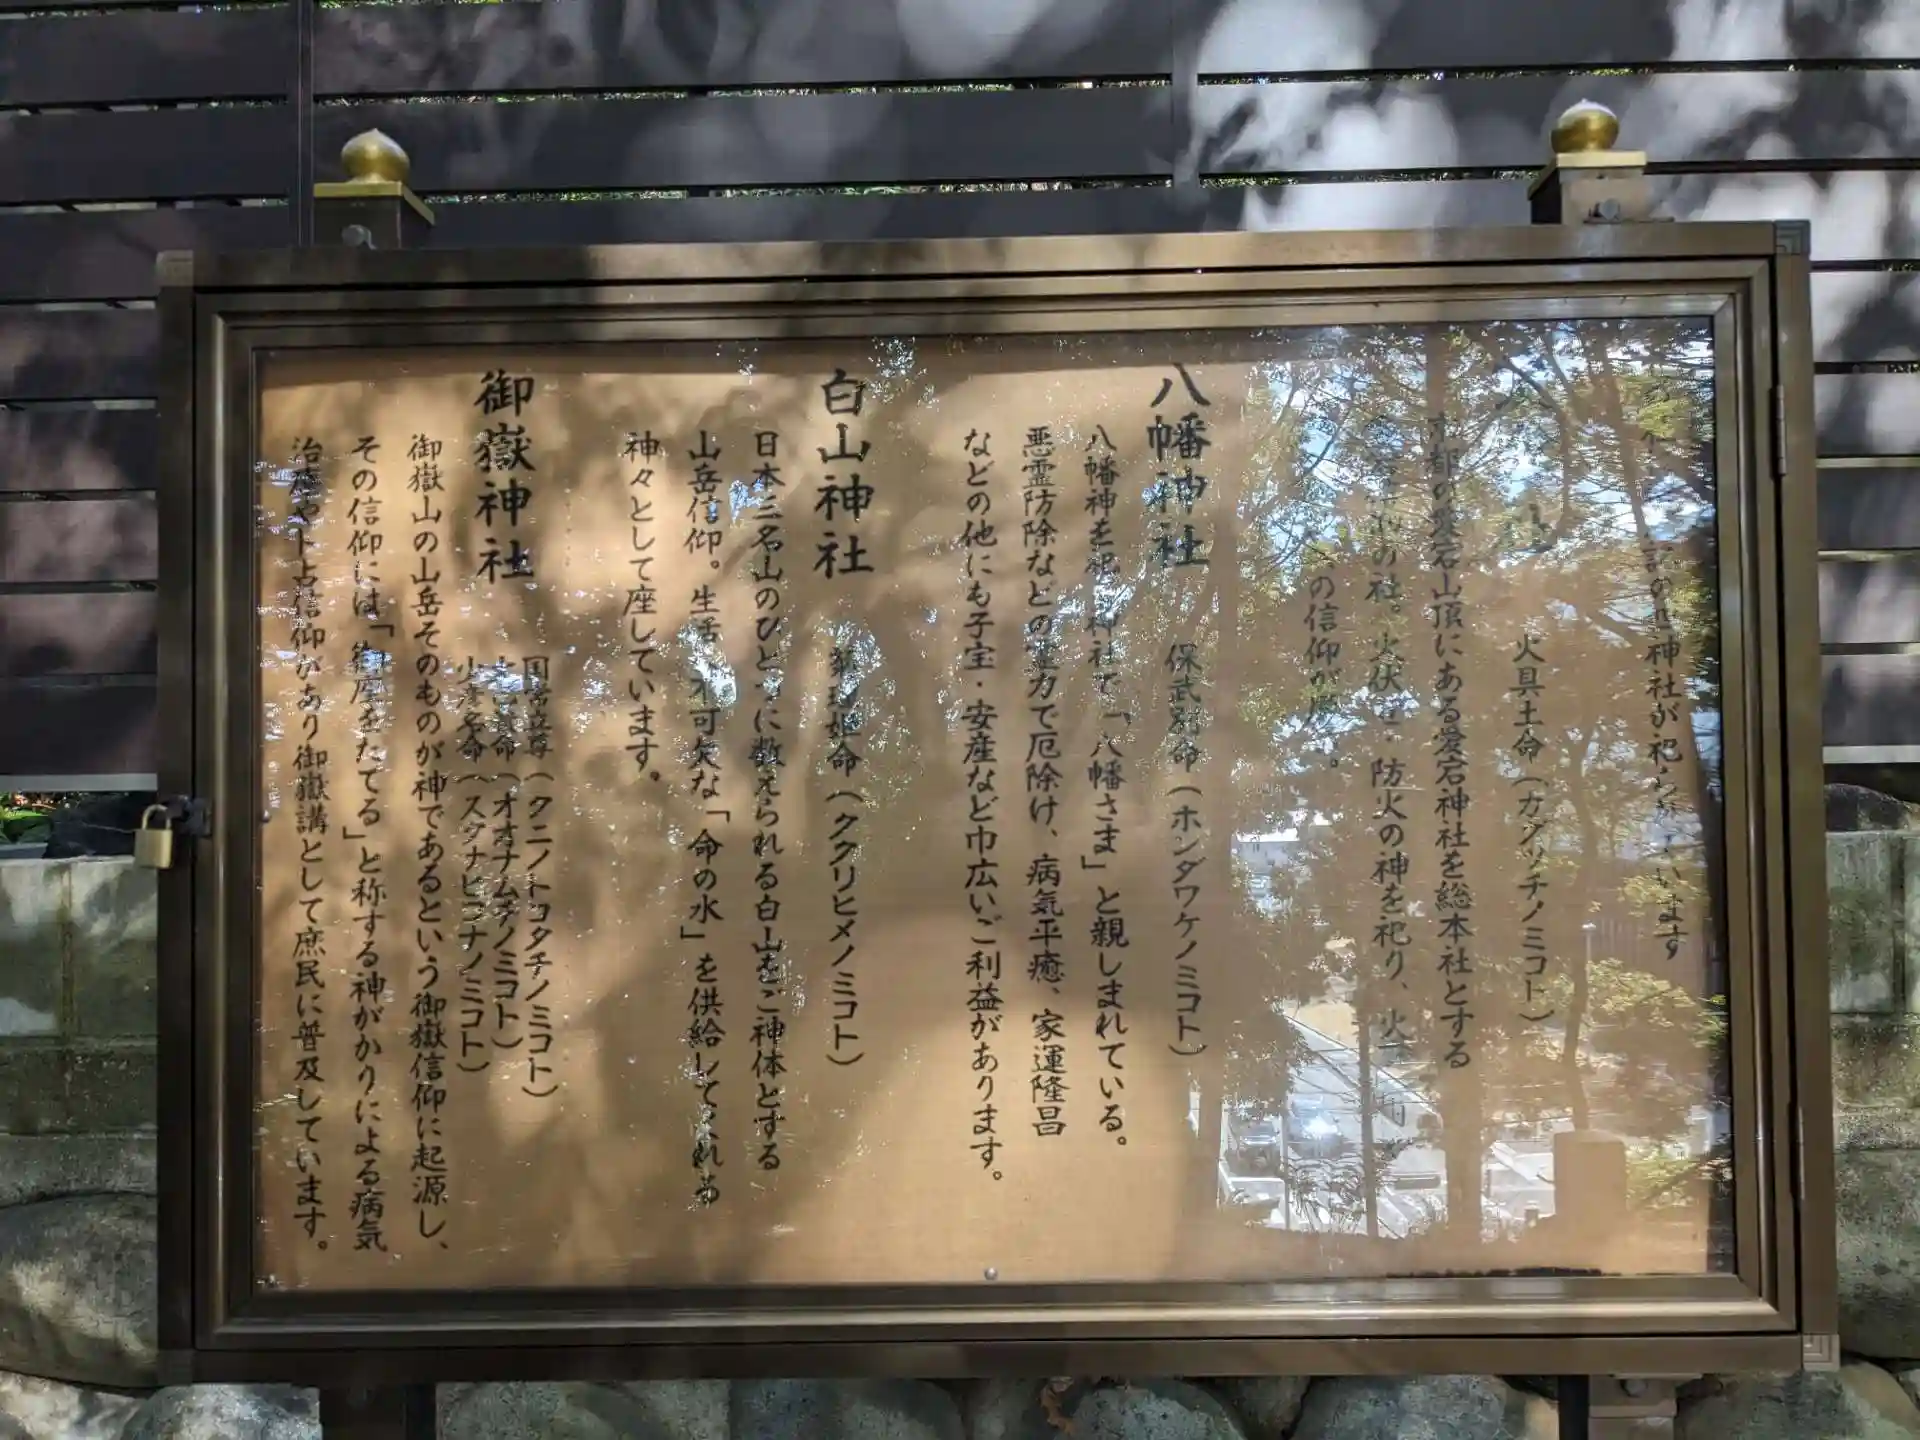 神社が祀られています
火具土命（カグツチノミコト）
京都の愛宕山頂にある愛宕神社を総本社とする
の社。火伏せ・防火の神を祀り、火
の信仰が
八幡神社
保武別命（ホンダワケノミコト）
八幡神を祀る神社で「八幡さま」と親しまれている。
悪霊防除などの霊力で厄除け、病気平癒、家運隆昌
などの他にも子宝・安産など巾広いご利益があります。
白山神社
菊理姫命（ククリヒメノミコト）
日本三名山のひとつに数えられる白山をご神体とする
山岳信仰。生活に不可欠な「命の水」を供給してくれる
神々として座しています。
御嶽神社
国常立尊（クニノトコタチノミコト）
大己貴命（オオナムチノミコト）
少彦名命（スクナヒコナノミコト）
御嶽山の山岳そのものが神であるという御嶽信仰に起源し、
その信仰には「御座をたてる」と称する神がかりによる病気
治癒や卜占信仰があり御嶽講として庶民に普及しています。